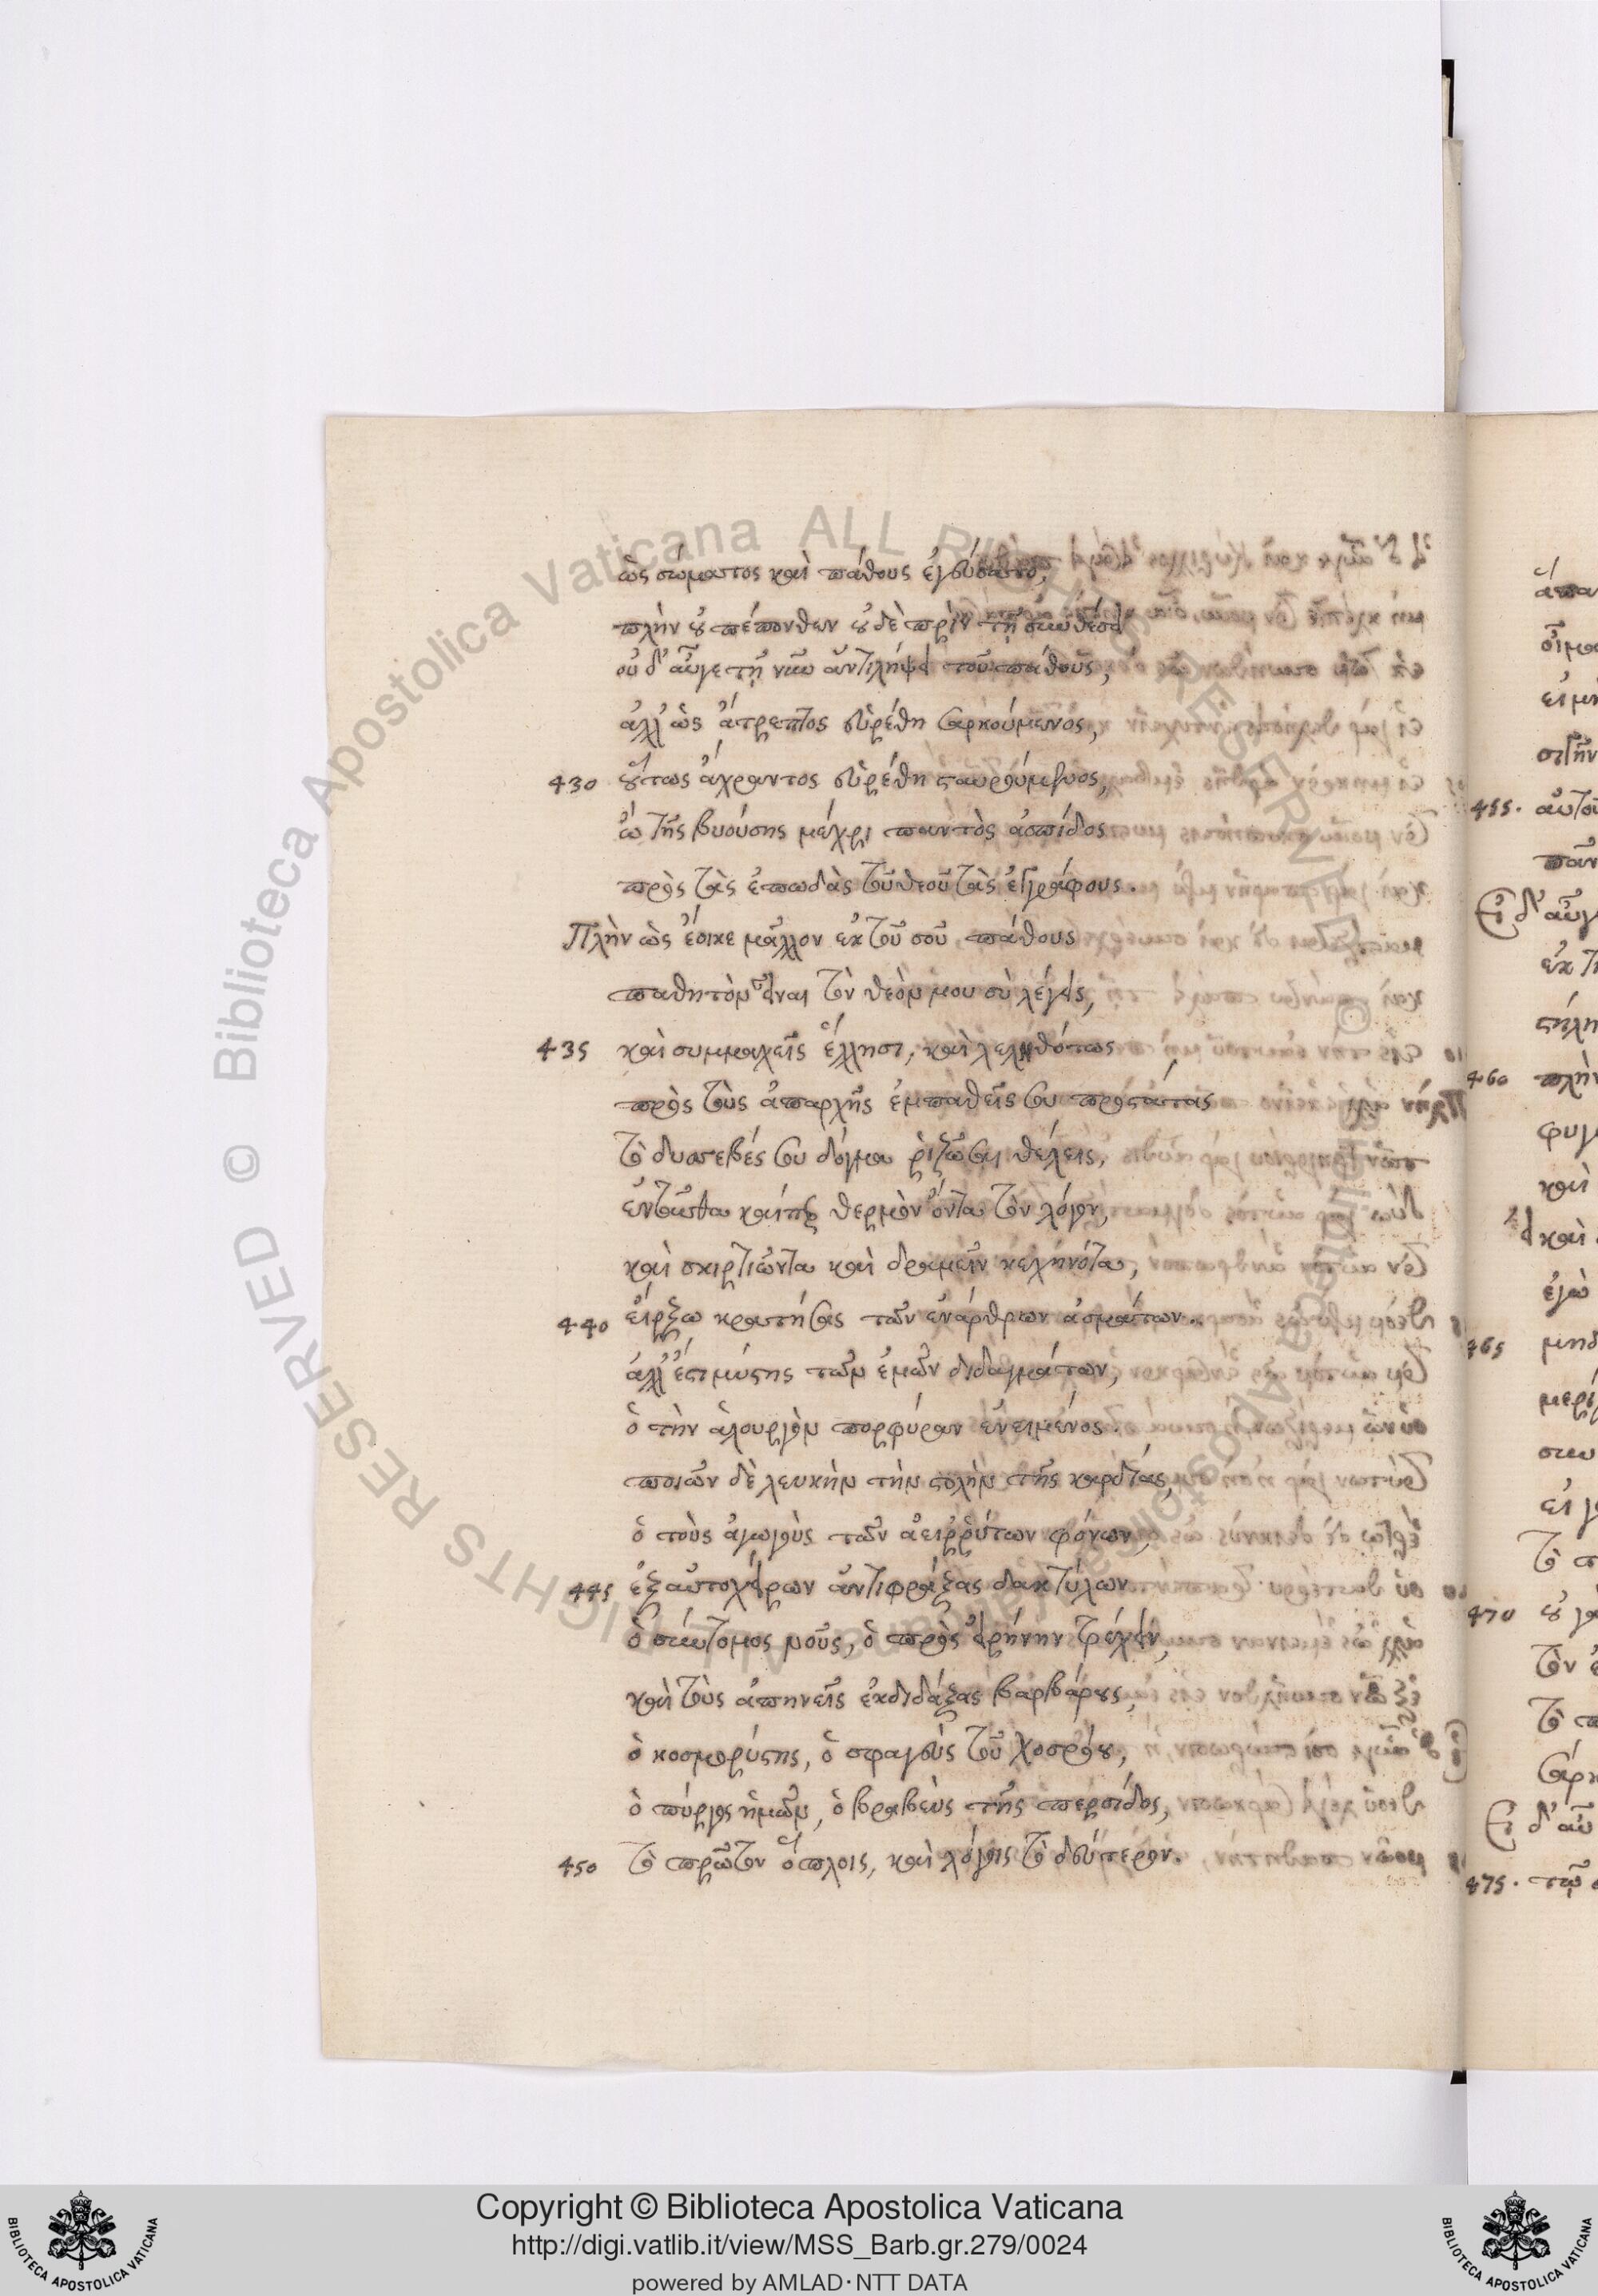 ὡς σώματος καὶ πάθους ἐγεύσατο,
πλὴν οὐ πέπονθεν οὐδὲ πρὶν τῇ συνθέσει
οὐδ' αὖγε τῇ νῦν ἀντιλήψει τοῦ πάθους,
ἀλλ' ὡς ἄτρεπτος εὑρέθη σαρκούμενος,
430 οὕτως ἄχραντος εὑρέθη σταυρούμενος,
ὦ τῆς βυούσης μέχρι παντὸς ἀσπίδος
πρὸς τὰς ἐπωδὰς τοῦ θεοῦ τὰς ἐγγράφους.
Πλὴν ὡς ἔοικε μᾶλλον ἐκ τοῦ σοῦ πάθους
παθητὸν εἶναι τὸν θεόν μου σὺ λέγεις,
435 καὶ συμμαχεῖς ἕλλησι, καὶ λεληθότως
πρὸς τοὺς ἀπαρχῆς ἐμπαθεῖς σου προστάτας
τὸ δυσεβές σου δόγμα ῥιζῶσαι θέλεις,
ἐνταῦθα καίπερ θερμὸν ὄντα τὸν λόγον,
καὶ σκιρτιῶντα καὶ δραμεῖν κεχηνότα,
440 εἶρξω κρατήσας τῶν ἐνάρθρων ἀσμάτων.
ἀλλ' ἔστι μύστης τῶν ἐμῶν διδαγμάτων,
ὁ τὴν ἁλουργὸν πορφύραν ἐνειμένος.
ποιῶν δὲ λευκὴν τὴν στολὴν τῆς καρδίας,
ὁ τοὺς ἀγωγοὺς τῶν ἀειῤῥύτων φόνων,
445 ἐξ αὐτοχείρων ἀντιφράξας δακτύλων
ὁ σύντομος νοῦς, ὁ πρὸς εἰρήνην τρέχειν,
καὶ τοὺς ἀπηνεῖς ἐκδιδάξας βαρβάρους,
ὁ κοσμορύστης, ὁ σφαγεὺς τοῦ Χοσρόου,
ὁ πύργος ἡμῶν, ὁ βραβεὺς τῆς περσίδος,
450 τὸ πρῶτον ὅπλοις, καὶ λόγοις τὸ δεύτερον.
455.
460
465
470
475.
Copyright © Biblioteca Apostolica Vaticana
http://digi.vatlib.it/view/MSS_Barb.gr.279/0024
powered by AMLAD·NTT DATA